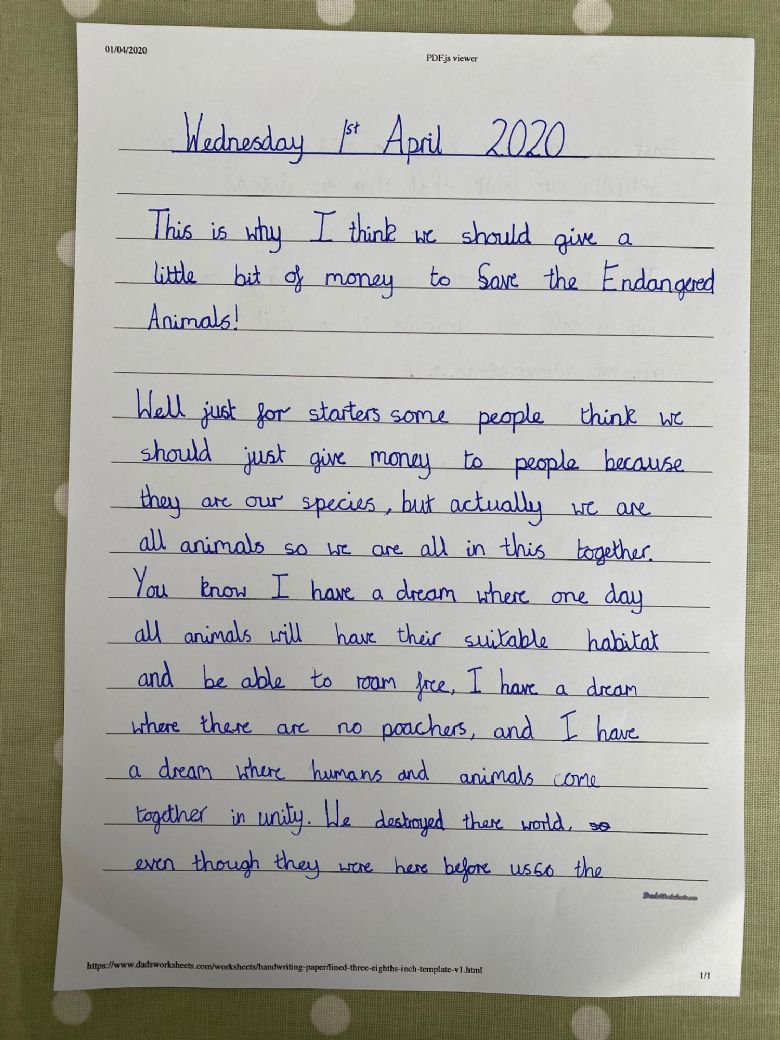 01/04/2020
PDF.js viewer
Wednesday 1st April 2020
This is why I think we should give a
little bit of money to Save the Endangered
Animals!
Well just for starters some people think we
should just give money to people because
they are our species, but actually we are
all animals so we are all in this together.
You know I have a dream where one day
all animals will have their suitable habitat
and be able to roam free, I have a dream
where there are no poachers, and I have
a dream where humans and animals come
together in unity. We destroyed there world, so
even though they were here before us so the
https://www.dadsworksheets.com/worksheets/handwriting-paper/lined-three-eighths-inch-template-v1.html
1/1